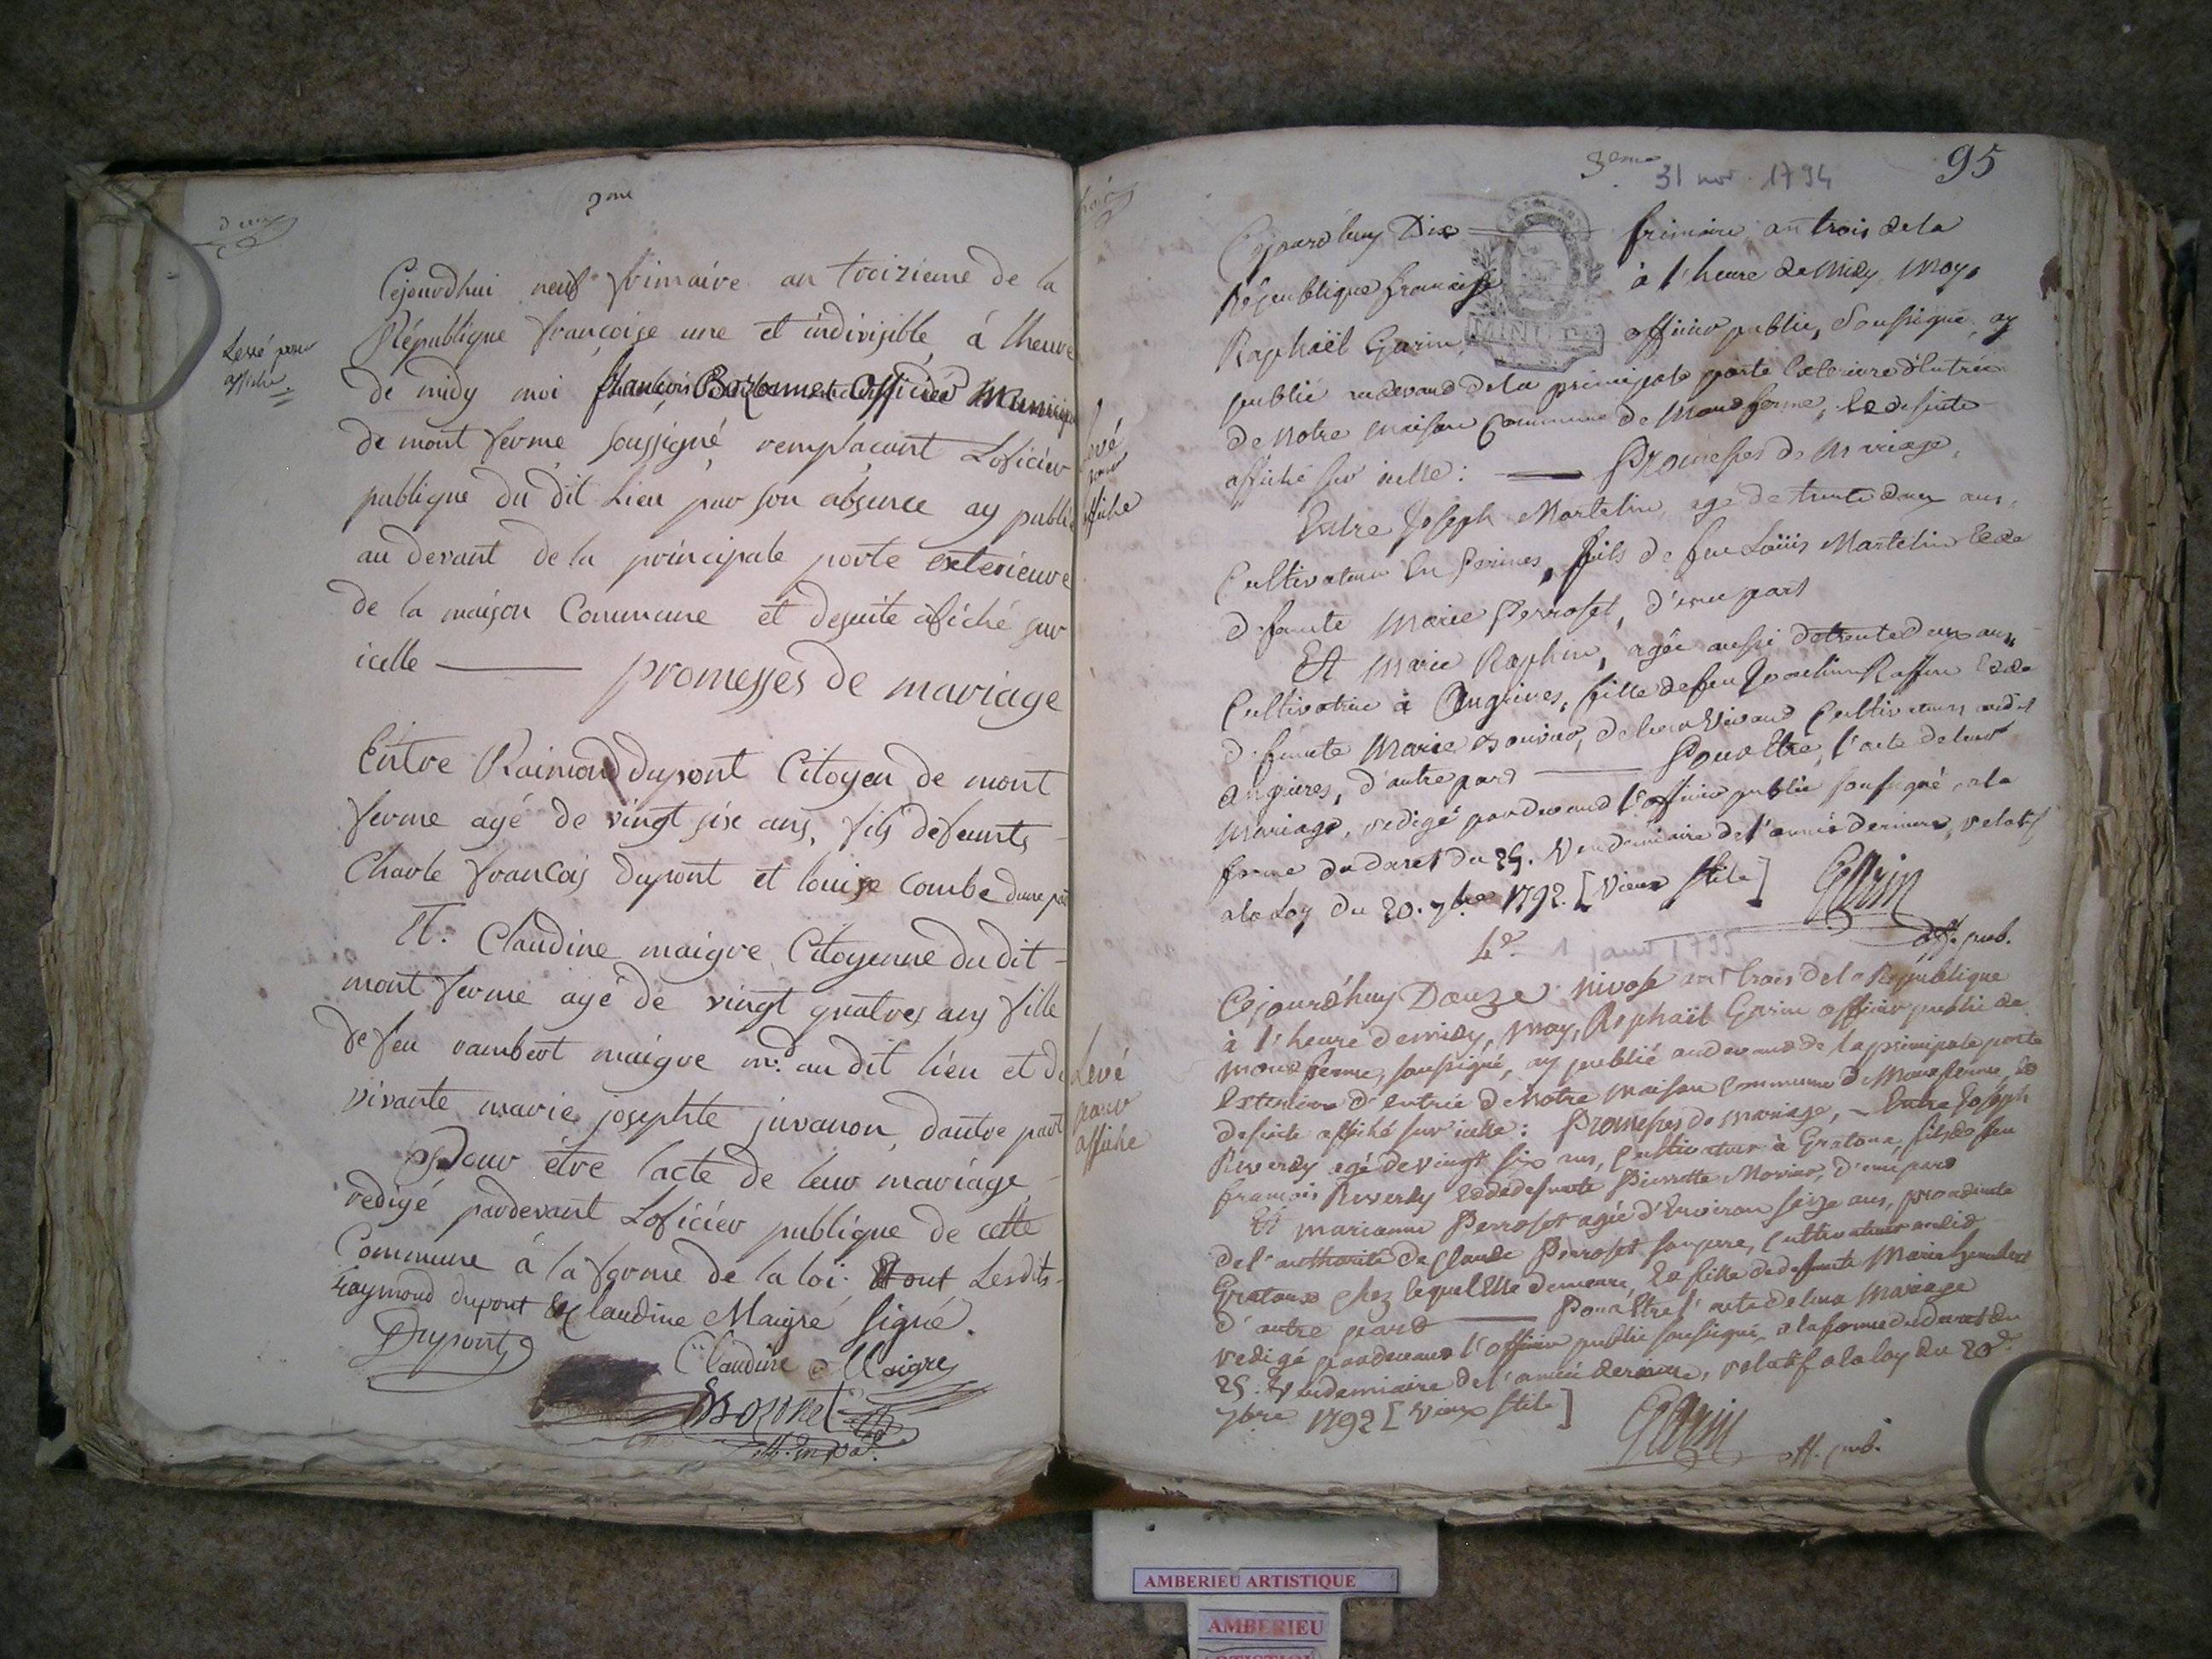 deux
2me
Cejourdhui neuf frimaire an troizieme de la
République françoise une et indivisible, à lheure
de midy moi françois Bozonnet officier Municipal
de mont ferme soussigné, remplaçant Loficier
publique du dit Lieu par son absence ay publié
au devant de la principale porte exterieure
de la maison Commune et desuite afiché sur
icelle promesses de mariage
Entre Raimond dupont Citoyen de mont
ferme agé de vingt six ans, fils defeunts
Charle francois Dupont et louise Combe dune part
Et. Claudine maigre Citoyenne du dit
mont ferme agé de vingt quatres ans fille
de feu rambert maigre md. au dit lieu et de
vivante marie josephte juvanon, dautre part
Pour être lacte de leur mariage
redigé pardevant Loficier publique de cette
Commune à la forme de la loi. Et ont Lesdits
raymond dupont et Claudine Maigre signé.
Dupont
Claudine Maigre
Bozonet
off. mpal.
Levé pour
affiche.
3eme
31 nov. 1794
95
Cejourd'huy Dix frimaire an trois de la
République francaise à l'heure de midy, moy,
Raphaël Garin, officier public, soussigné, ay
publié audevand de la principale porte Exterieure d'Entrée
de Notre maison Commune de Montferme, Et desuite
affiché sur icelle: Promesses de Mariage,
Entre Joseph Martelin, agé de trente deux ans,
Cultivateur En Perines, fils de feu Loüis Martelin Et de
defunte Marie Perroset, d'une part
Et Marie Raphin, agée aussi de trente deux ans,
Cultivatrice à Angrieres, fille de feu Joachim Raffin Et de
defunte Marie Bouvier, de leur Vivand Cultivateurs audit
Angrieres, d'autre pard Pour Etre l'acte de leur
Mariage, redigé pardevand l'officier public soussigné, a la
forme du decret du 25. Vendemiaire de l'année derniere, relatif
a la Loy du 20. 7bre 1792. [Vieux Stile]
Garin
off. pub.
Levé
pour
affiche
4e
1 janv 1795
Cejourd'huy Douze nivose an trois de la Republique
à l'heure de midy, moy, Raphaël Garin officier public de
Montferme, soussigné, ay publié audevand de la principale porte
Exterieure d'Entrée de Notre maison Commune de Montferme, Et
desuite affiché sur icelle: Promesses de mariage, Entre Joseph
Reverdy agé de vingt six ans, Cultivateur à Gratoux, fils de feu
francois Reverdy Et de defunte Pierrette Morier, d'une pard
Et marianne Perroset agée d'Environ seize ans, procedante
de l'authorité de Claude Perroset son pere, Cultivateur audit
Gratoux chez lequel Elle demeure, Et fille de defunte Marie
d'autre pard Pour Etre l'acte de leur Mariage
redigé pardevand l'officier public soussigné, a la forme du decret du
25. Vendemiaire de l'année derniere, relatif a la loy du 20e.
7bre 1792 [Vieux Stile]
Garin off. pub.
Levé
pour
affiche
AMBERIEU ARTISTIQUE
AMBERIEU
ARTISTIQUE